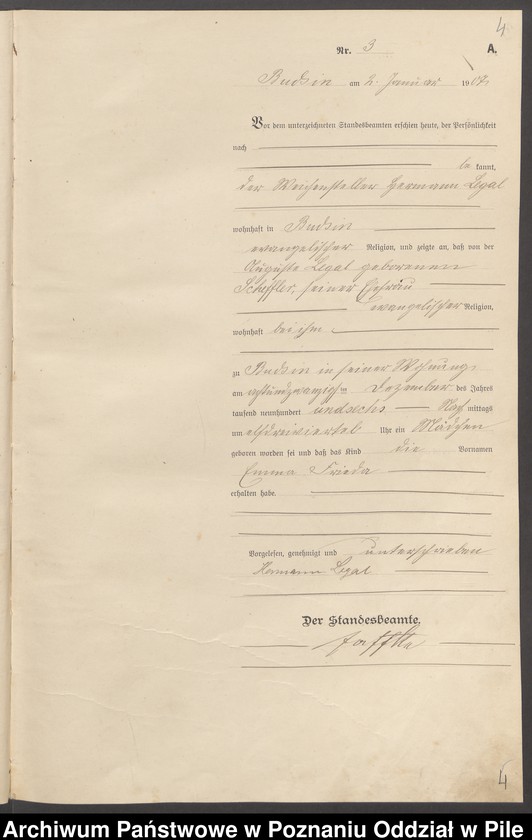 4
Nr. 3 A.
Budsin am 2. Januar 1907.
Vor dem unterzeichneten Standesbeamten erschien heute, der Persönlichkeit
nach
be kannt,
der Weichensteller Hermann Legal
wohnhaft in Budsin
evangelischer Religion, und zeigte an, daß von der
Auguste Legal geborenen
Scheffler, seiner Ehefrau
evangelischer Religion,
wohnhaft bei ihm
zu Budsin in seiner Wohnung
am achtundzwanzigsten Dezember des Jahres
tausend neunhundert undsechs Nach mittags
um elfdreiviertel Uhr ein Mädchen
geboren worden sei und daß das Kind die Vornamen
Emma Frieda
erhalten habe.
Vorgelesen, genehmigt und unterschrieben
Hermann Legal
Der Standesbeamte.
4
Archiwum Państwowe w Poznaniu Oddział w Pile